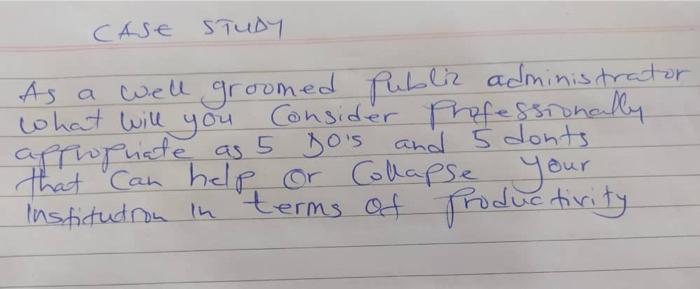 CASE STUDY
As a well groomed public administrator
what will you Consider professionally
appropriate as 5 DO's and 5 donts
that Can help or Collapse your
Institudron in terms of productivity